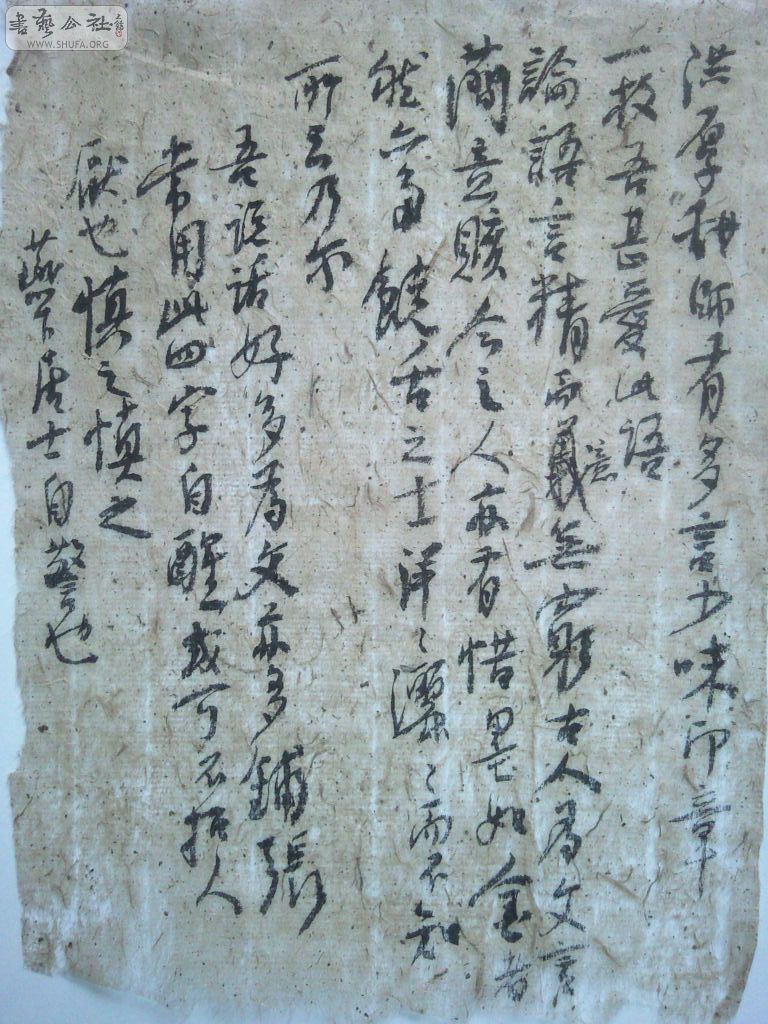 書藝公社
WWW.SHUFA.ORG
洪厚甜師有多言少味印章
一枚吾甚愛此語
論語言精而義意無窮古人為文言
簡意賅今之人亦有惜墨如金者
然亦多饒舌之士洋々灑々而不知
所云乃尔
吾說話好多為文亦多鋪張
常用此四字自醒或可不招人
厭也慎之慎之
燕下居士自警也